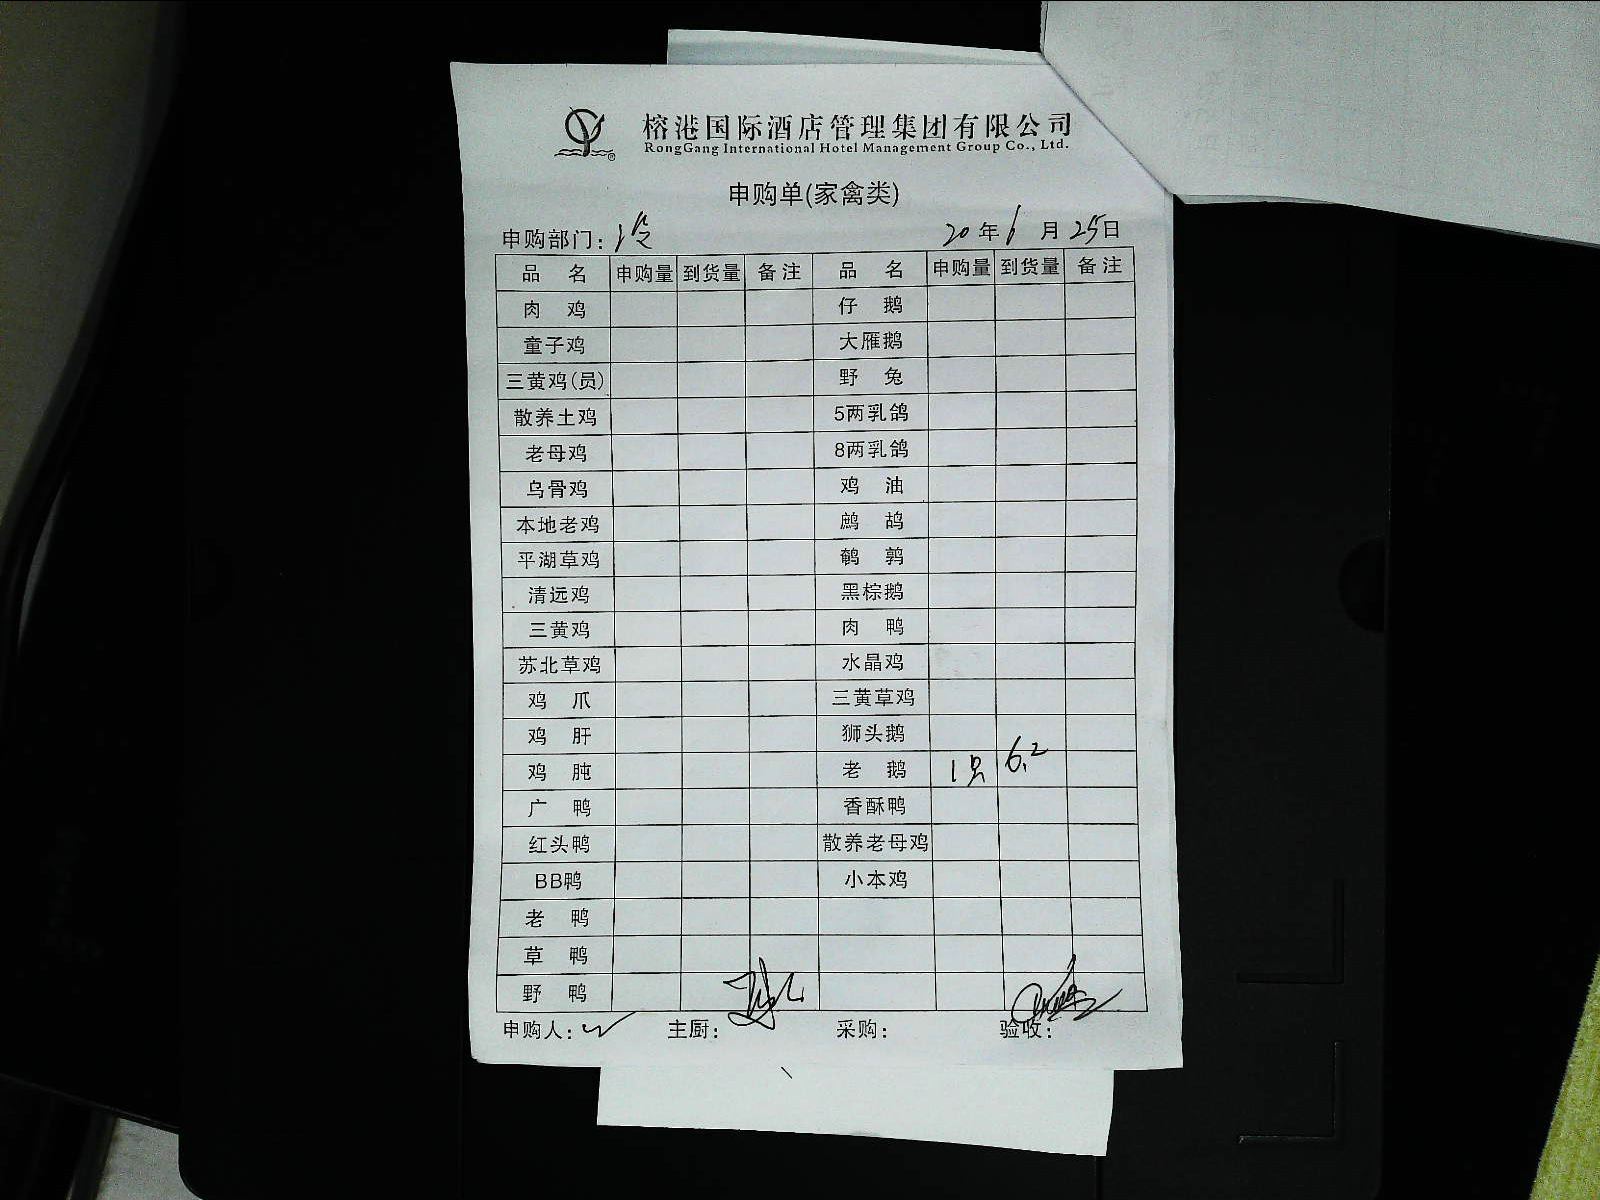 榕港国际酒店管理集团有限公司
RongGang International Hotel Management Group Co., Ltd.
申购单(家禽类)
申购部门: 20年6月25日
品 名 申购量 到货量 备注 品 名 申购量 到货量 备注
肉 鸡 仔 鹅
童子鸡 大雁鹅
三黄鸡(员) 野 兔
散养土鸡 5两乳鸽
老母鸡 8两乳鸽
乌骨鸡 鸡 油
本地老鸡 鹧 鸪
平湖草鸡 鹌 鹑
清远鸡 黑棕鹅
三黄鸡 肉 鸭
苏北草鸡 水晶鸡
鸡 爪 三黄草鸡
鸡 肝 狮头鹅
鸡 肫 老 鹅 1只 6.2
广 鸭 香酥鸭
红头鸭 散养老母鸡
BB鸭 小本鸡
老 鸭
草 鸭
野 鸭
申购人: 主厨: 采购: 验收: